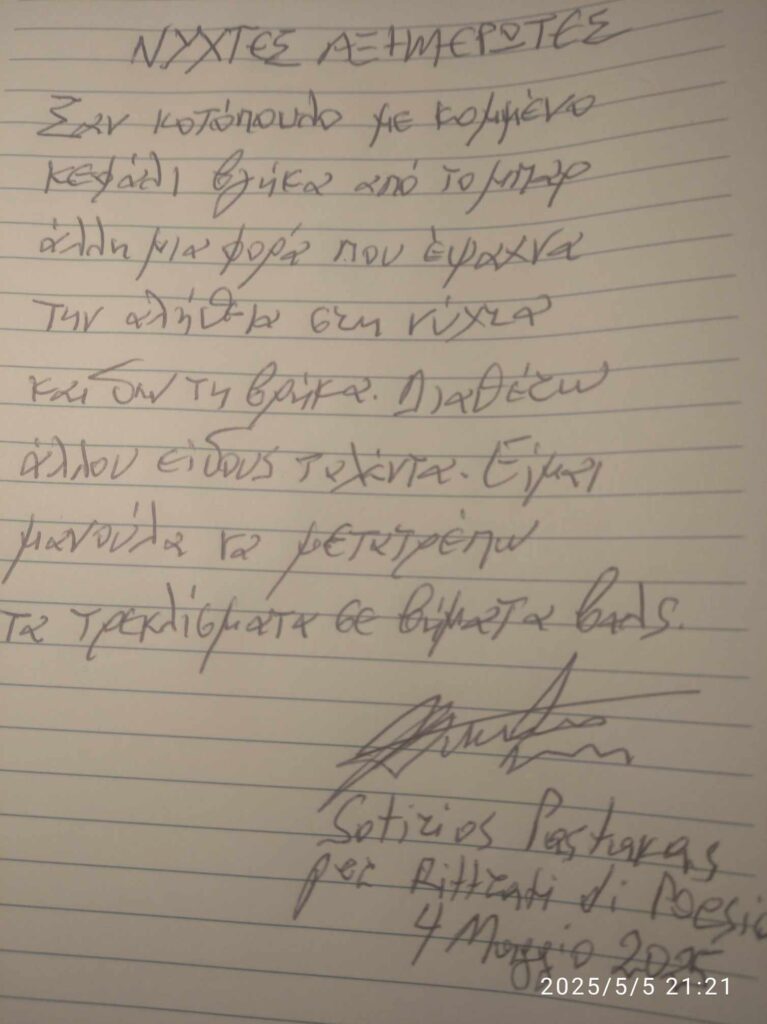 ΝΥΧΤΕΣ ΑΞΗΜΕΡΩΤΕΣ
Σαν κοτόπουλο με κομμένο
κεφάλι βγήκα από το μπαρ
άλλη μια φορά που έψαχνα
την αλήθεια στη νύχτα
και δεν τη βρήκα. Διαθέτω
άλλου είδους ταλέντα. Είμαι
μανούλα να μετατρέπω
τα τρεκλίσματα σε βήματα βαλς.
Sotirios Pastakas
per Ritratti di Poesia
4 Maggio 2025
2025/5/5 21:21